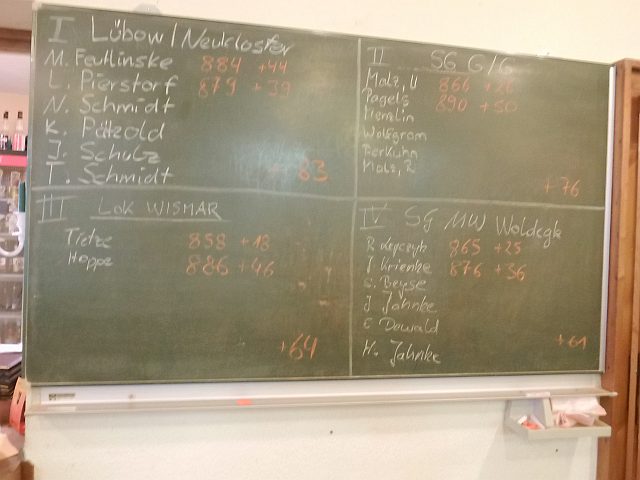 I Lübow/Neukloster
M. Feullinske 884 +44
L. Pierstorf 879 +39
N. Schmidt
K. Pätzold
J. Schulz
T. Schmidt + 83
II SG G/G
Malz, U 866 +26
Pagels 890 +50
Wolfgram
Berkühn
Malz, R
+76
III Lok WISMAR
Tietze 858 +18
Hoppe 886 +46
+64
IV SG MW Woldegk
R. Lepczyk 865 +25
J. Krienke 876 +36
Beyse
J Jahnke
E Dewald
H. Jahnke
+61